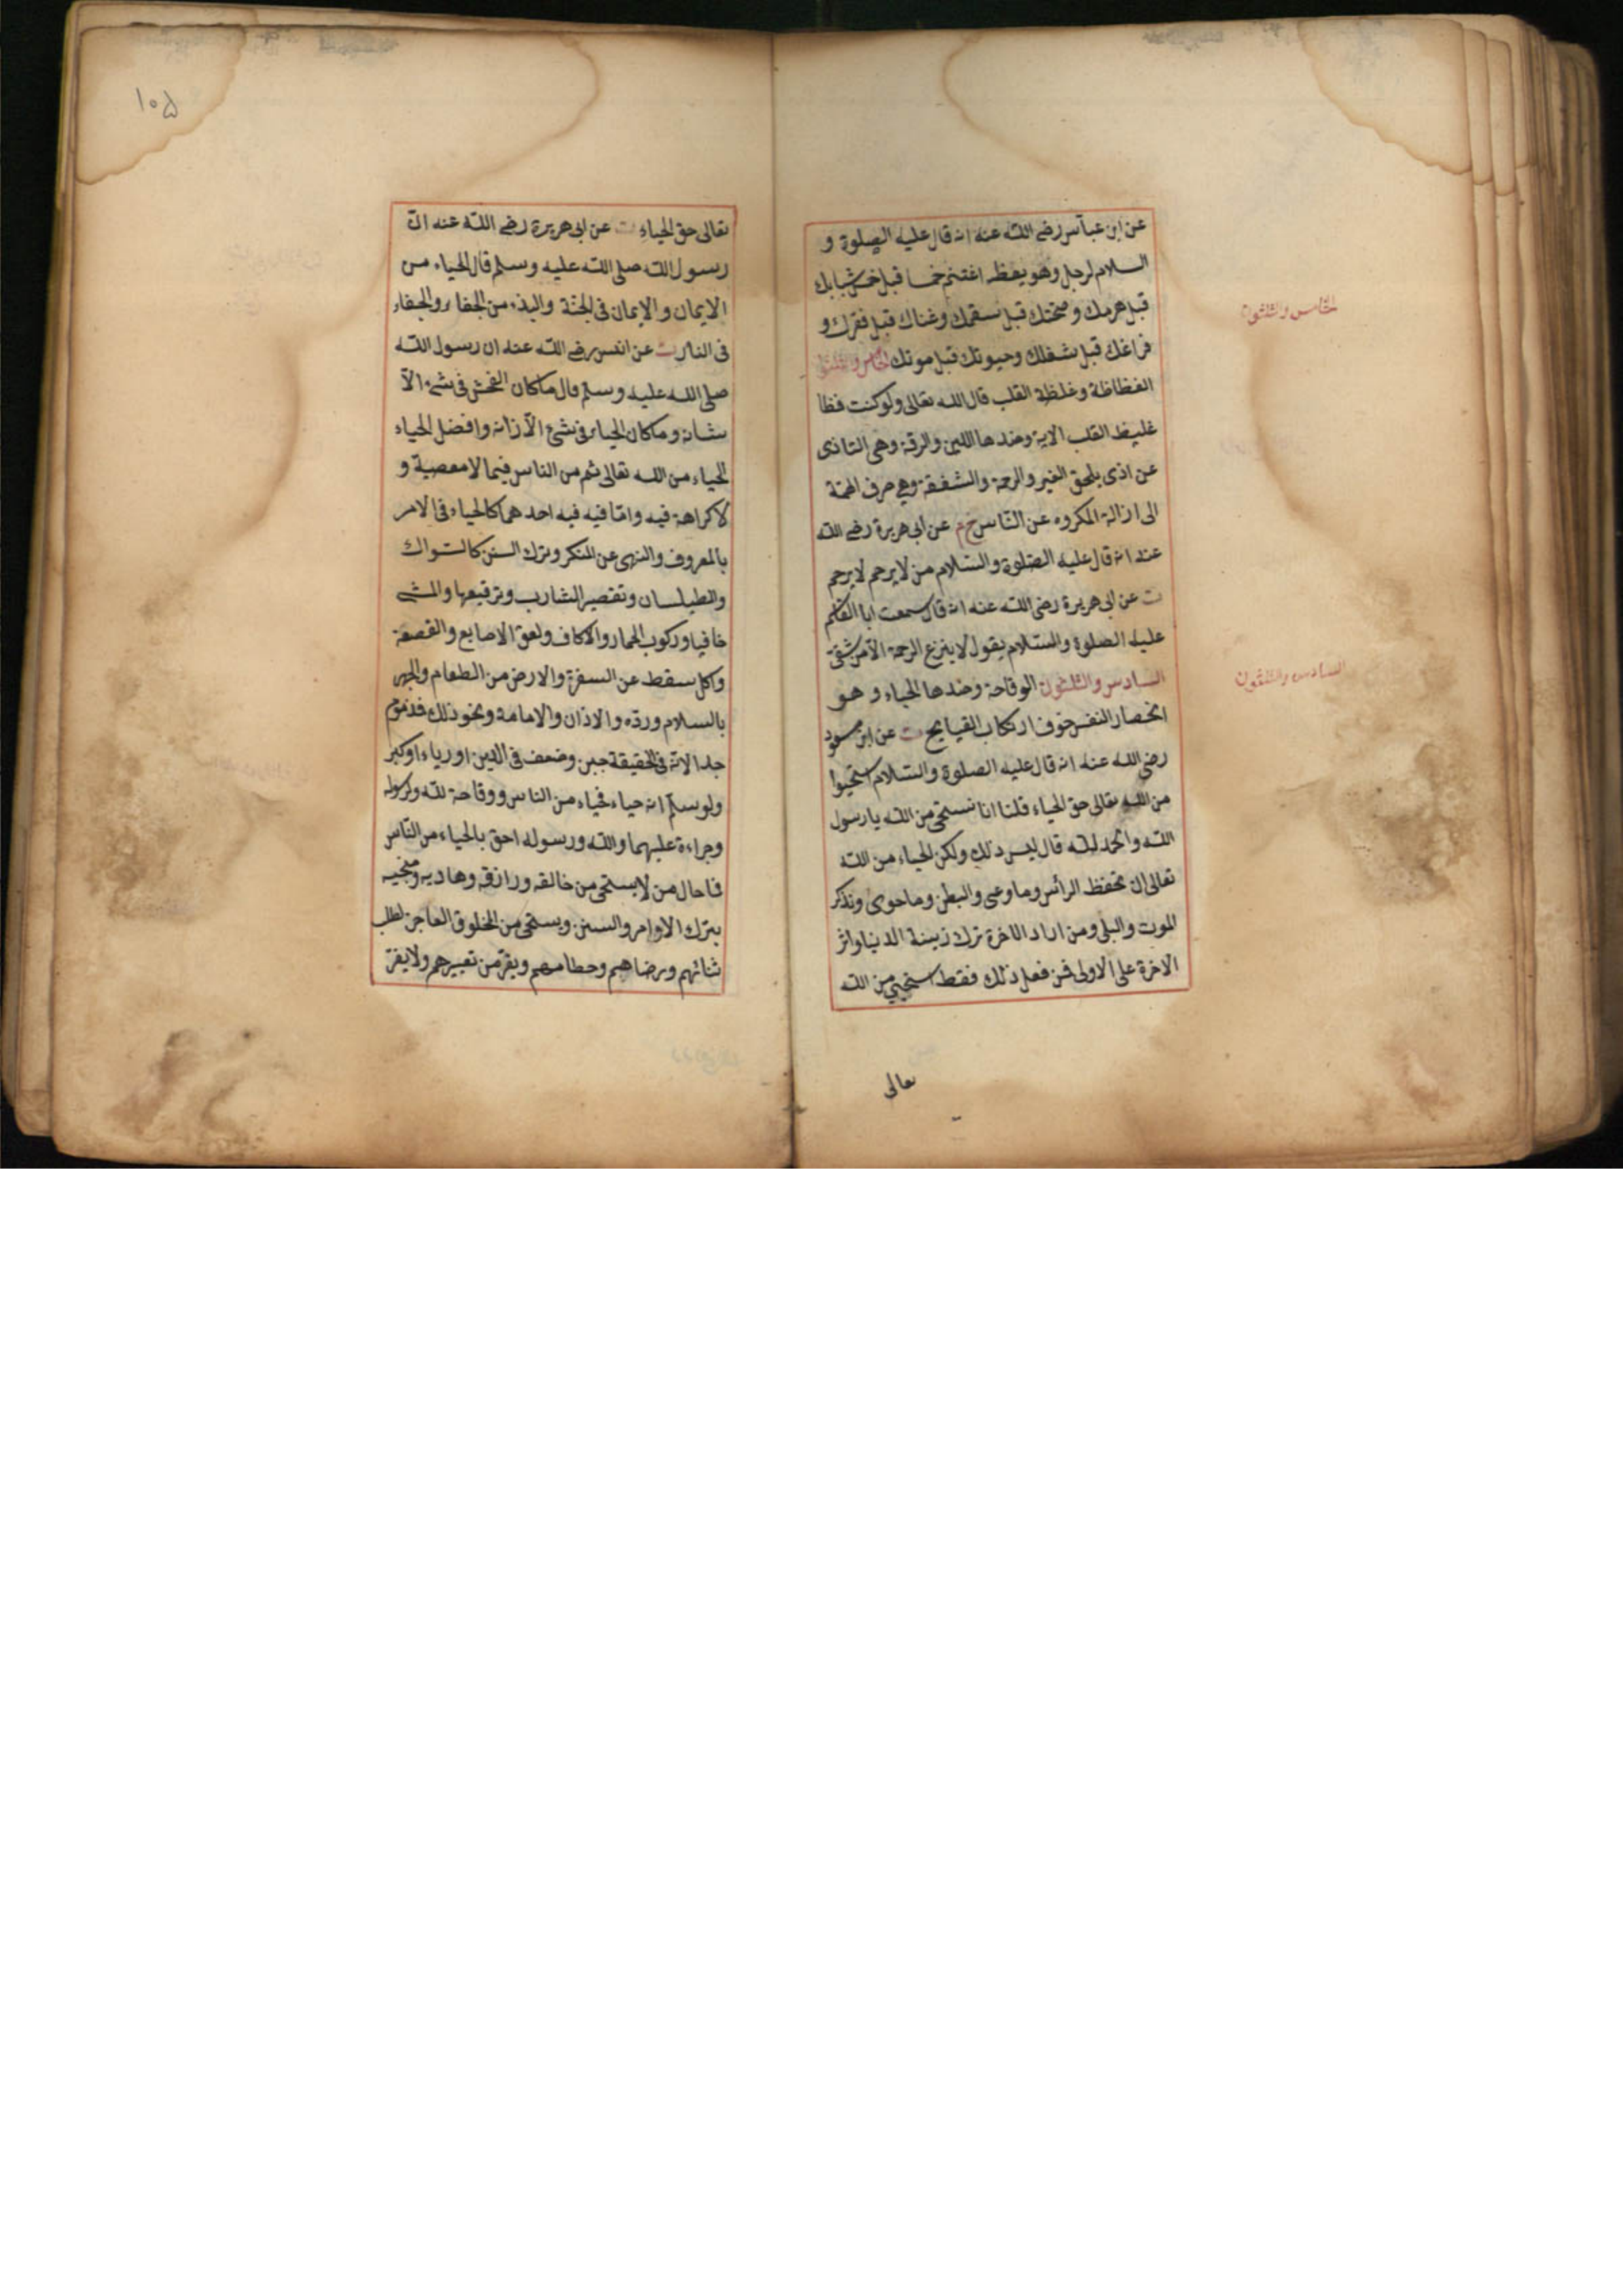 عن ابن عباس رضى الله عنه انه قال عليه الصلوة و
السلام لرجل وهو يعظه اغتنم خمسا قبل خمس شبابك
قبل هرمك وصحتك قبل سقمك وغناك قبل فقرك و
فراغك قبل شغلك وحيوتك قبل موتك الخامس والثلثون
الفظاظة وغلظة القلب قال الله تعالى ولو كنت فظا
غليظ القلب الاية وضدها اللين والرقة وهى التاذى
عن اذى يلحق الغير والرحمة والشفقة وهى صرف الهمة
الى ازالة المكروه عن الناس خ م عن ابى هريرة رضى الله
عنه انه قال عليه الصلوة والسلام من لا يرحم لا يرحم
ت عن ابى هريرة رضى الله عنه انه قال سمعت ابا القاسم
عليه الصلوة والسلام يقول لا ينزع الرحمة الا من شقى
السادس والثلثون الوقاحة وضدها الحياء وهو
انحصار النفس خوف ارتكاب القبايح ت عن ابن مسعود
رضى الله عنه انه قال عليه الصلوة والسلام استحيوا
من الله تعالى حق الحياء قلنا انا نستحى من الله يا رسول
الله والحمد لله قال ليس ذلك ولكن الحياء من الله
تعالى ان تحفظ الرأس وما وعى والبطن وما حوى وتذكر
الموت والبلى ومن اراد الاخرة ترك زينة الدنيا واثر
الاخرة على الاولى فمن فعل ذلك فقط استحيى من الله
تعالى
الخامس والثلثون
السادس والثلثون
١٠۵
تعالى حق الحياء ت عن ابى هريرة رضى الله عنه ان
رسول الله صلى الله عليه وسلم قال الحياء من
الايمان والايمان فى الجنة والبذء من الجفاء والجفاء
فى النار ت عن انس رضى الله عنه ان رسول الله
صلى الله عليه وسلم قال ما كان الفحش فى شئ الا
شانه وما كان الحياء فى شئ الا زانه وافضل الحياء
الحياء من الله تعالى ثم من الناس فيما لا معصية و
لا كراهة فيه واما فيه فيه احدهما كالحياء فى الامر
بالمعروف والنهى عن المنكر وترك السنن كالسواك
والطيلسان وتقصير الشارب وترقيعها والمشى
حافيا وركوب الحمار والاكاف ولعق الاصابع والقصعة
واكل سقط عن السفرة والارض من الطعام والجهر
بالسلام ورده والاذان والامامة ونحو ذلك فذموم
جدا لانه فى الحقيقة جبن وضعف فى الدين او رياء او كبر
ولو سلم انه حياء فحياء من الناس ووقاحة لله ولرسوله
وجراءة عليهما والله ورسوله احق بالحياء من الناس
فما حال من لا يستحى من خالقه ورازقه وهاديه ومنجيه
بترك الاوامر والسنن ويستحى من المخلوق العاجز لطلب
ثنائهم ورضاهم وحطامهم ويفر من تعييرهم ولا يفر